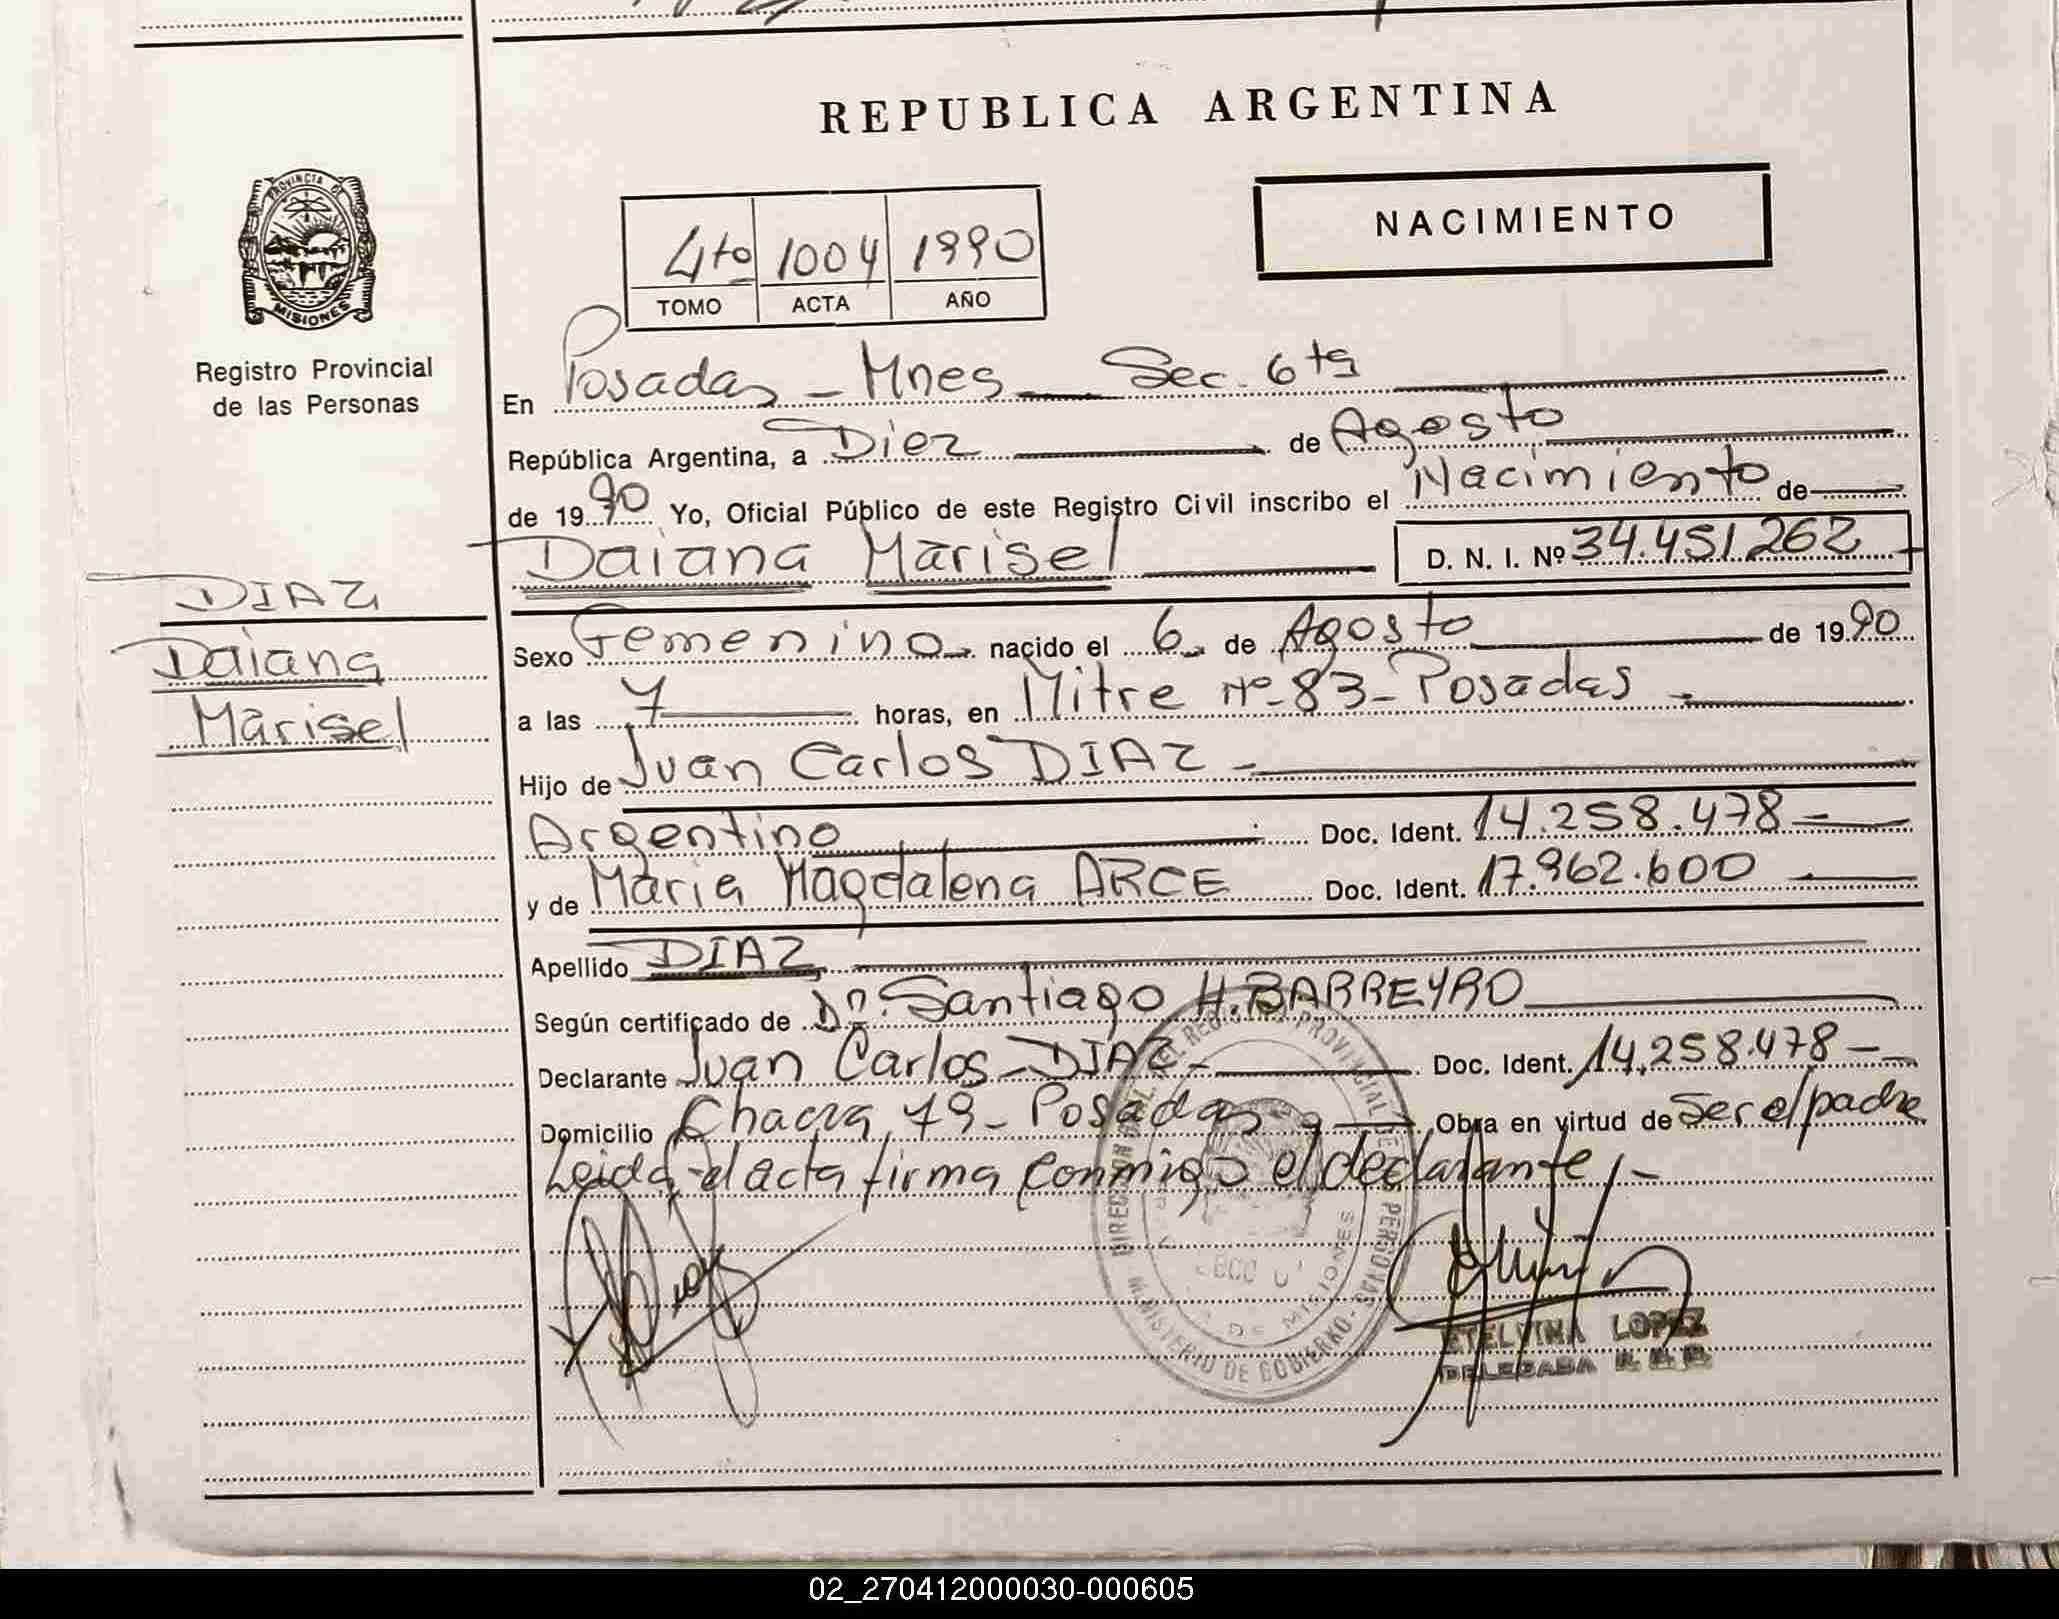 REPUBLICA ARGENTINA
NACIMIENTO
4to 1004 1990
TOMO ACTA AÑO
PROVINCIA DE
MISIONES
Registro Provincial
de las Personas
En Posadas - Mnes - Sec. 6ta
República Argentina, a Diez de Agosto
de 1990 Yo, Oficial Público de este Registro Civil inscribo el Nacimiento de
Daiana Marisel D. N. I. Nº 34.451.262
DIAZ
Daiana
Marisel
Sexo Femenino nacido el 6 de Agosto de 1990
a las 7 horas, en Mitre Nº 83 - Posadas -
Hijo de Juan Carlos DIAZ -
Argentino Doc. Ident. 14.258.478 -
y de Maria Magdalena ARCE Doc. Ident. 17.962.600
Apellido DIAZ
Según certificado de Dn. Santiago H. BARREYRO
Declarante Juan Carlos - DIAZ - Doc. Ident. 14.258.478 -
Domicilio Chacra 79 - Posadas Obra en virtud de Ser el padre
Leida el acta firma conmigo el declarante, -
DIRECCION GRAL. DEL REGISTRO PROVINCIAL DE PERSONAS
MINISTERIO DE GOBIERNO
DE MISIONES
ETELVINA LOPEZ
DELEGADA
02_270412000030-000605